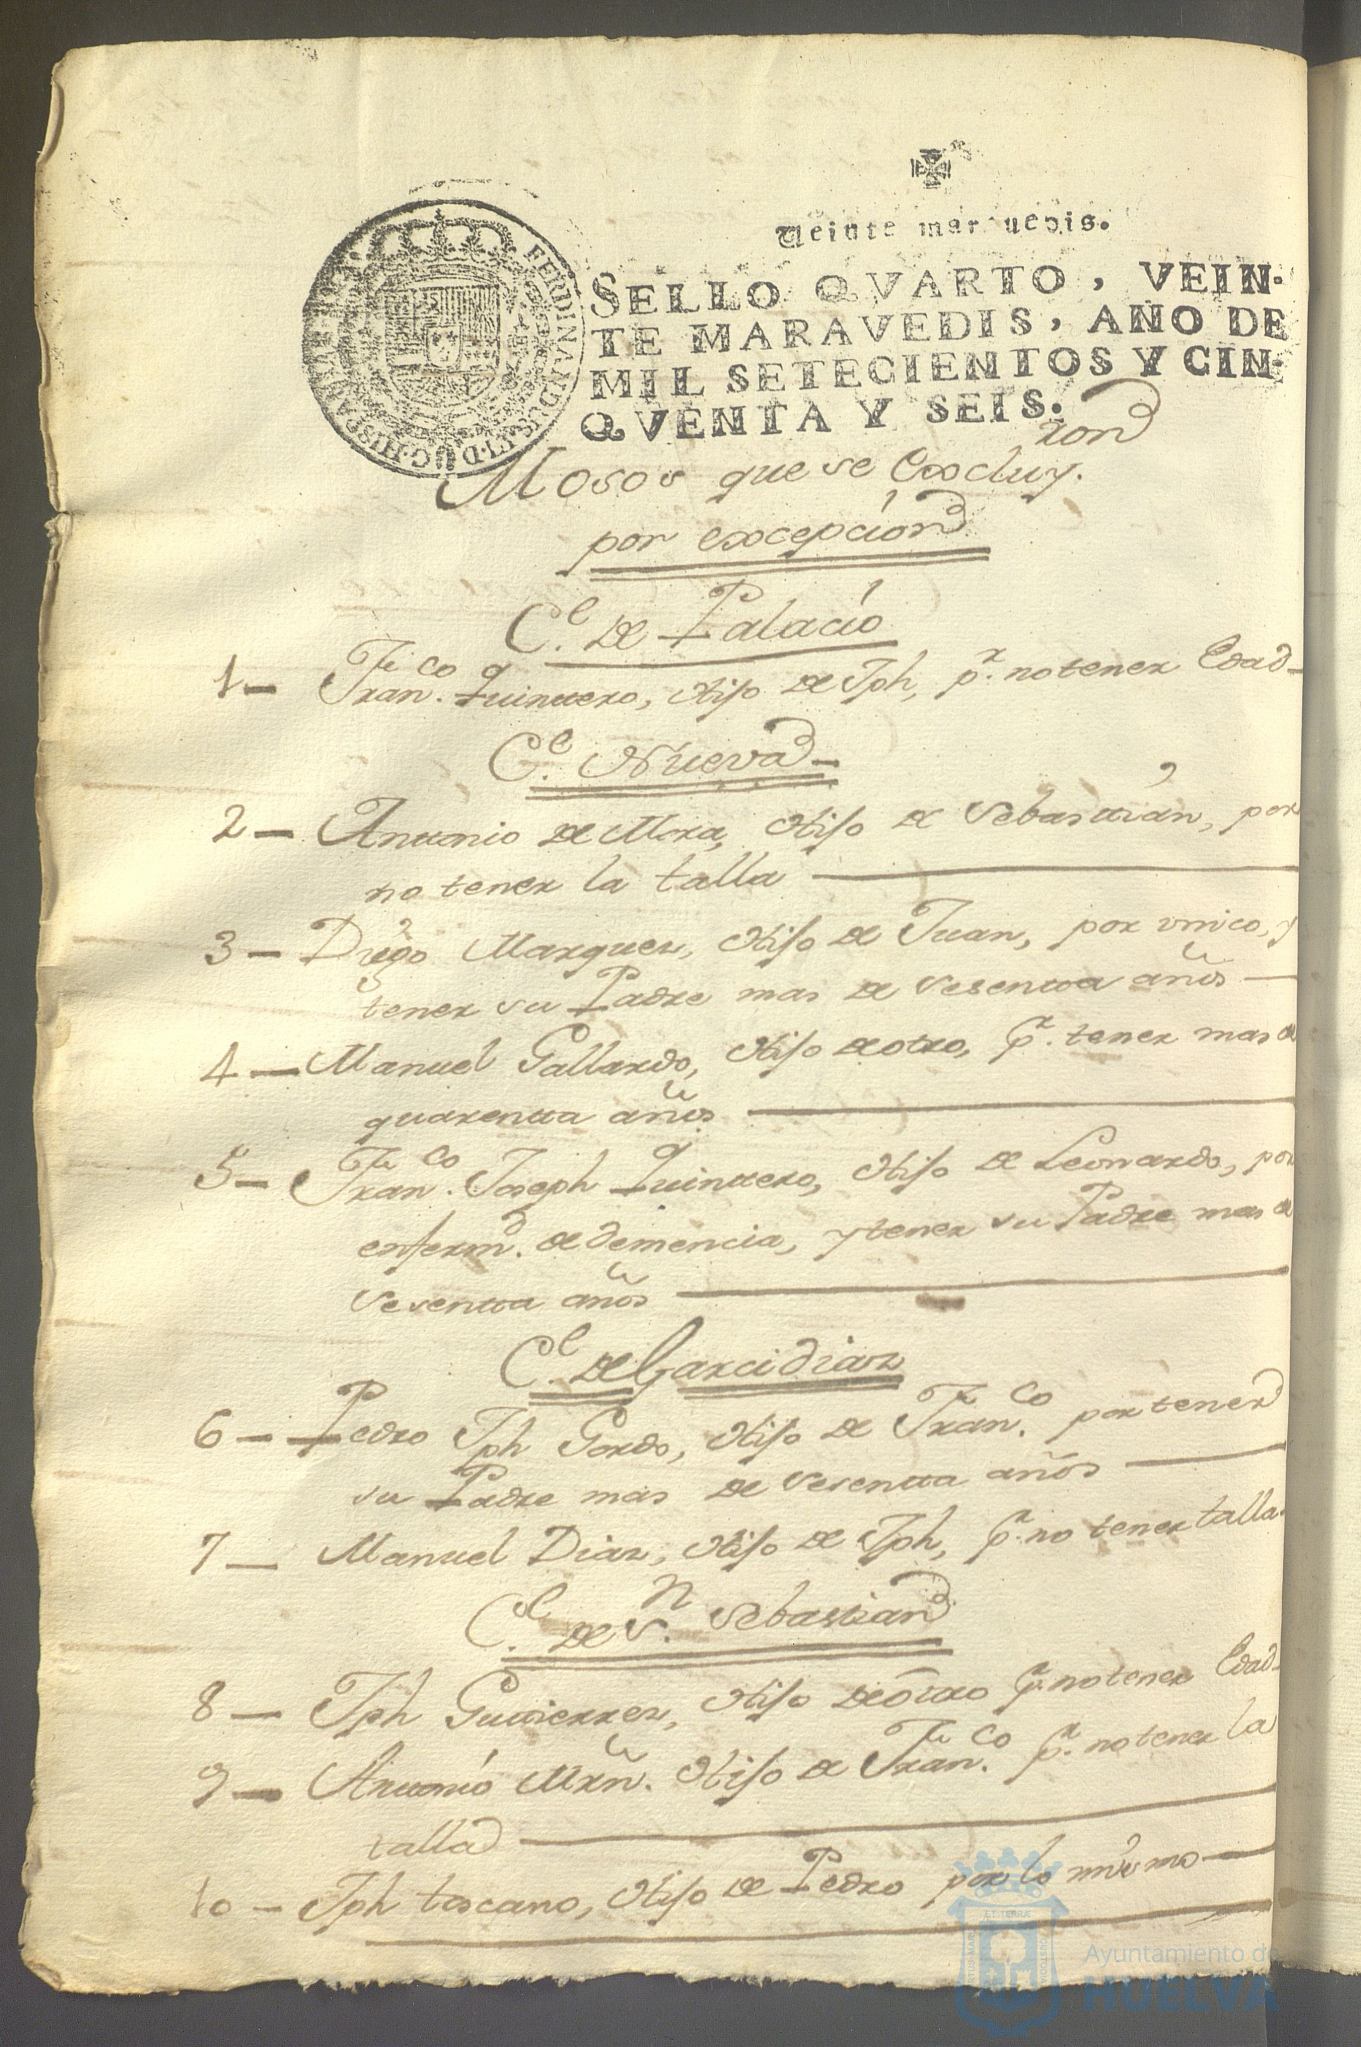 Veinte marauedis.
SELLO QVARTO, VEIN-
TE MARAVEDIS, AÑO DE
MIL SETECIENTOS Y CIN-
QVENTA Y SEIS.
FERDINANDUS VI D G HISPANIAR
Mosos que se Excluy.ron
por excepcion
C.e de Palacio
1- Fran.co Quintero, Hijo de Jph, p.r no tener Edad-
C.e Nueva-
2- Antonio de Mora, Hijo de Sebastian, por
no tener la talla
3- Diego Marquez, Hijo de Juan, por vnico, y
tener su Padre mas de sesentta años
4- Manuel Gallardo, Hijo de otro, p.r tener mas de
quarentta años
5- Fran.co Joseph Quintero, Hijo de Leonardo, por
enferm.d de demencia, y tener su Padre mas de
sesentta años
C.e de Garcidiaz
6- Pedro Jph Gordo, Hijo de Fran.co por tener
su Padre mas de sesentta años
7- Manuel Diaz, Hijo de Jph, p.r no tener talla.
C.e de S.n Sebastian
8- Jph Gutierrez, Hijo de otro p.r no tener Edad-
9- Antonio Mrñ. Hijo de Fran.co p.r no tener la
talla
10- Jph toscano, Hijo de Pedro por lo mismo
Ayuntamiento de
HUELVA